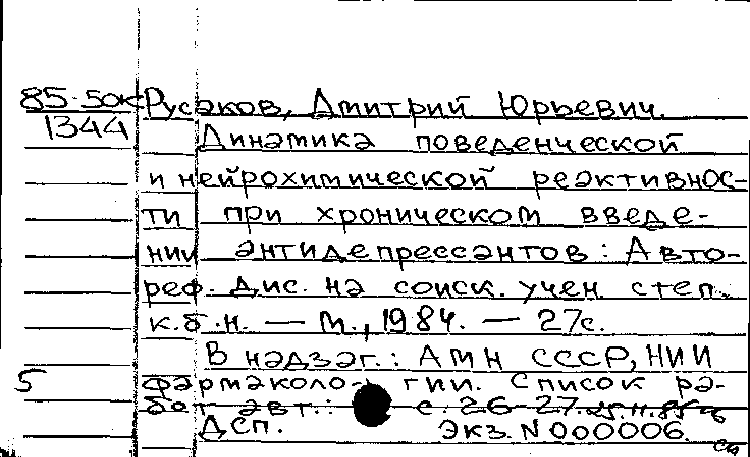 85-50к Русаков, Дмитрий Юрьевич.
1344 Динамика поведенческой
и нейрохимической реактивнос-
ти при хроническом введе-
нии антидепрессантов: Авто-
реф. дис. на соиск. учен. степ.
к.б.н. — М., 1984. — 27с.
В надзаг.: АМН СССР, НИИ
5 фармаколо- гии. Список ра-
бот авт.: с. 26-27. 25.11.85
ДСП. Экз. N 000006.